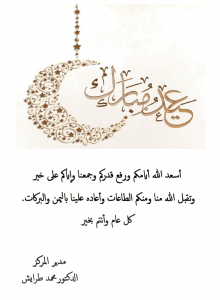 عيد مبارك
أسعد الله أيامكم ورفع قدركم وجمعنا وإياكم على خير
وتقبل الله منا ومنكم الطاعات وأعاده علينا باليمن والبركات.
كل عام وأنتم بخير
مدير المركز
الدكتور محمد طرابش